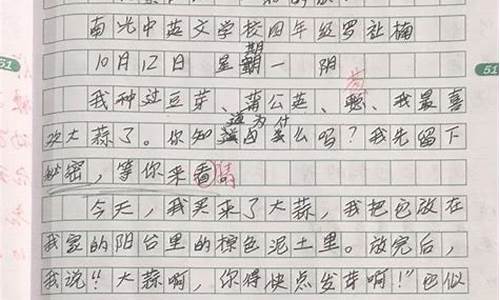 南光中英文学校四年经罗祉楠
10月12日 星期一 阴
我种过豆芽、蒲公英、葱、我最喜
欢大蒜了。你知道为什么吗？我先留下
秘密，等你来猜。
今天，我买来了大蒜，我把它放在
我家的阳台里的棕色泥土里。放完后，
我说“大蒜啊，你得快点发芽啊！”它似
51
51